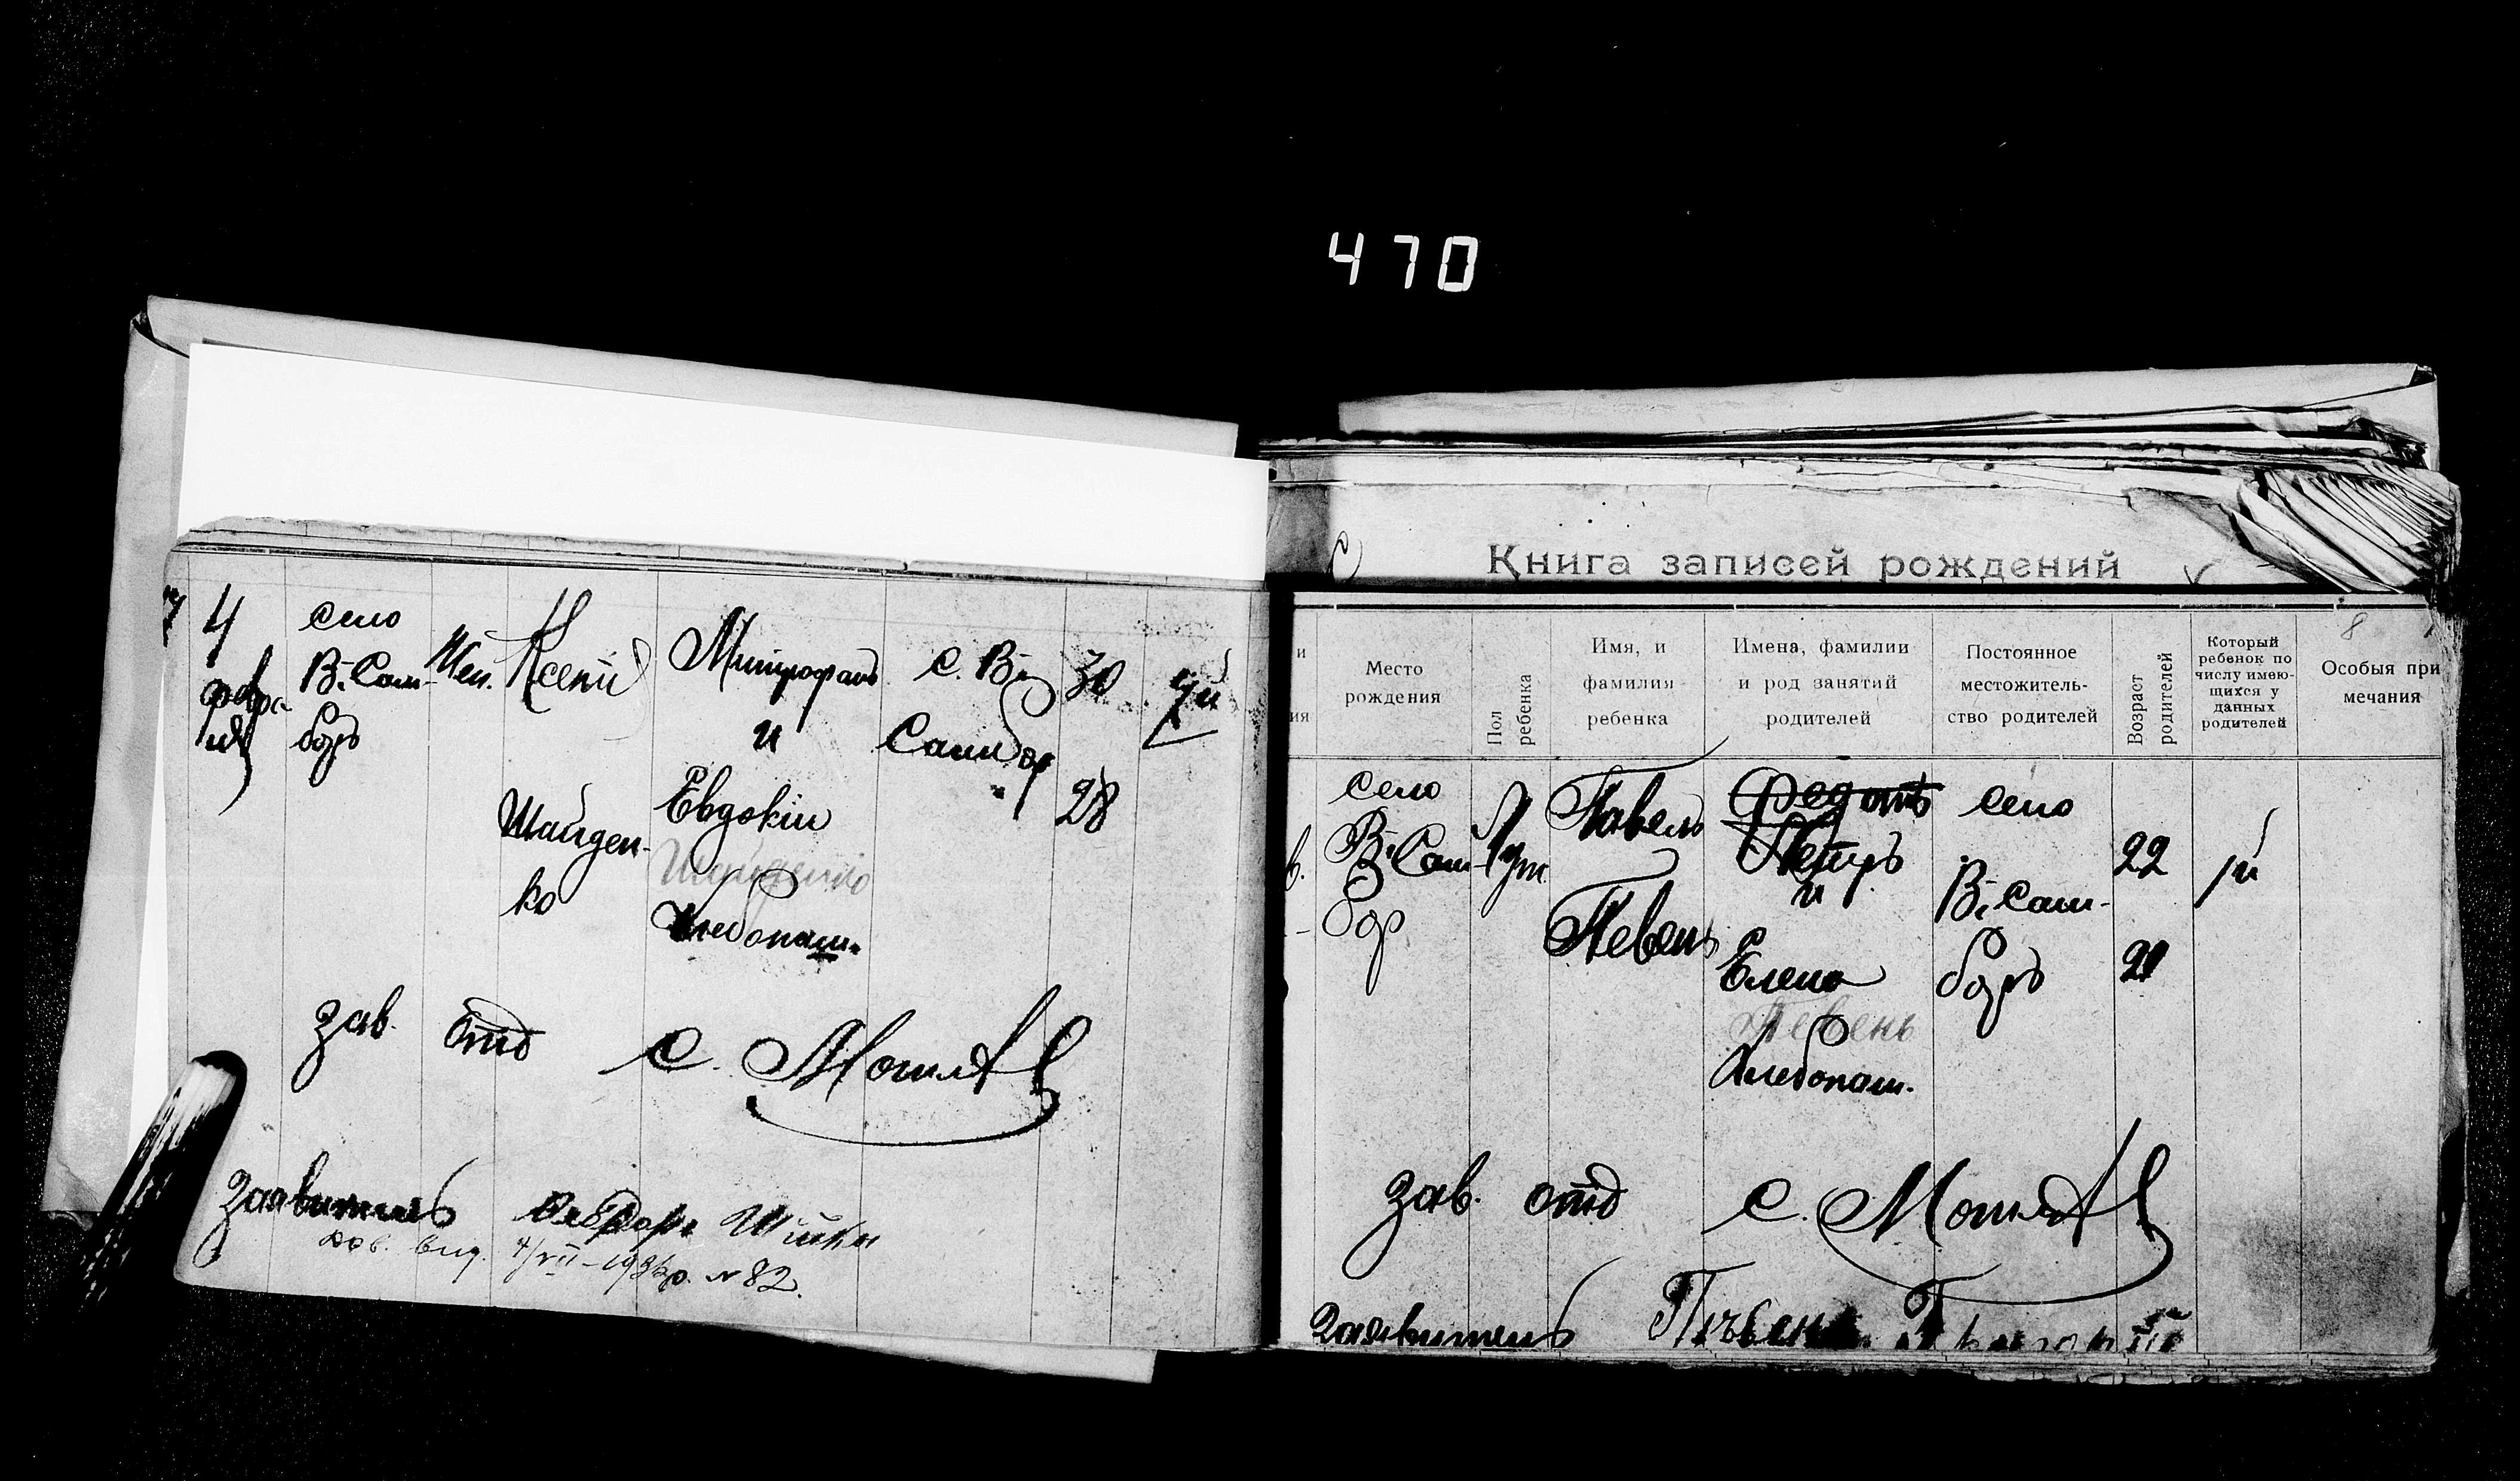 470
4
февра-
ля
село
В. Сам-
боръ
Жен.
Ксенія
Шайден-
ко
Митрофанъ
и
Евдокія
Шайденко
Хлебопаш.
с. В.
Самборъ
30
28
4й
Зав. отд С.
Заявитель
выд. 4/VII-193 р. № 82.
Книга записей рождений
8
и
ия
Место
рождения
Пол
ребенка
Имя, и
фамилия
ребенка
Имена, фамилии
и род занятий
родителей
Постоянное
местожитель-
ство родителей
Возраст
родителей
Который
ребенок по
числу имею-
щихся у
данных
родителей
Особыя при
мечания
село
В. Сам-
бор
Муж
Павелъ
Певень
Федотъ
Петръ
и
Елена
Певень
Хлебопаш.
село
В. Сам-
боръ
22
21
1й
Зав. отд С.
Заявитель